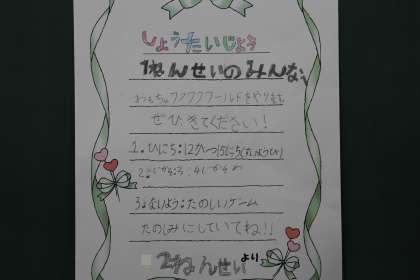 しょうたいじょう
1ねんせいのみんなへ
おもちゃワクワクワールドをやります
ぜひ、きてください!
1.ひにち:12がつ15にち
3.ないよう:たのしいゲーム
たのしみにしていてね!!
2ねんせいより